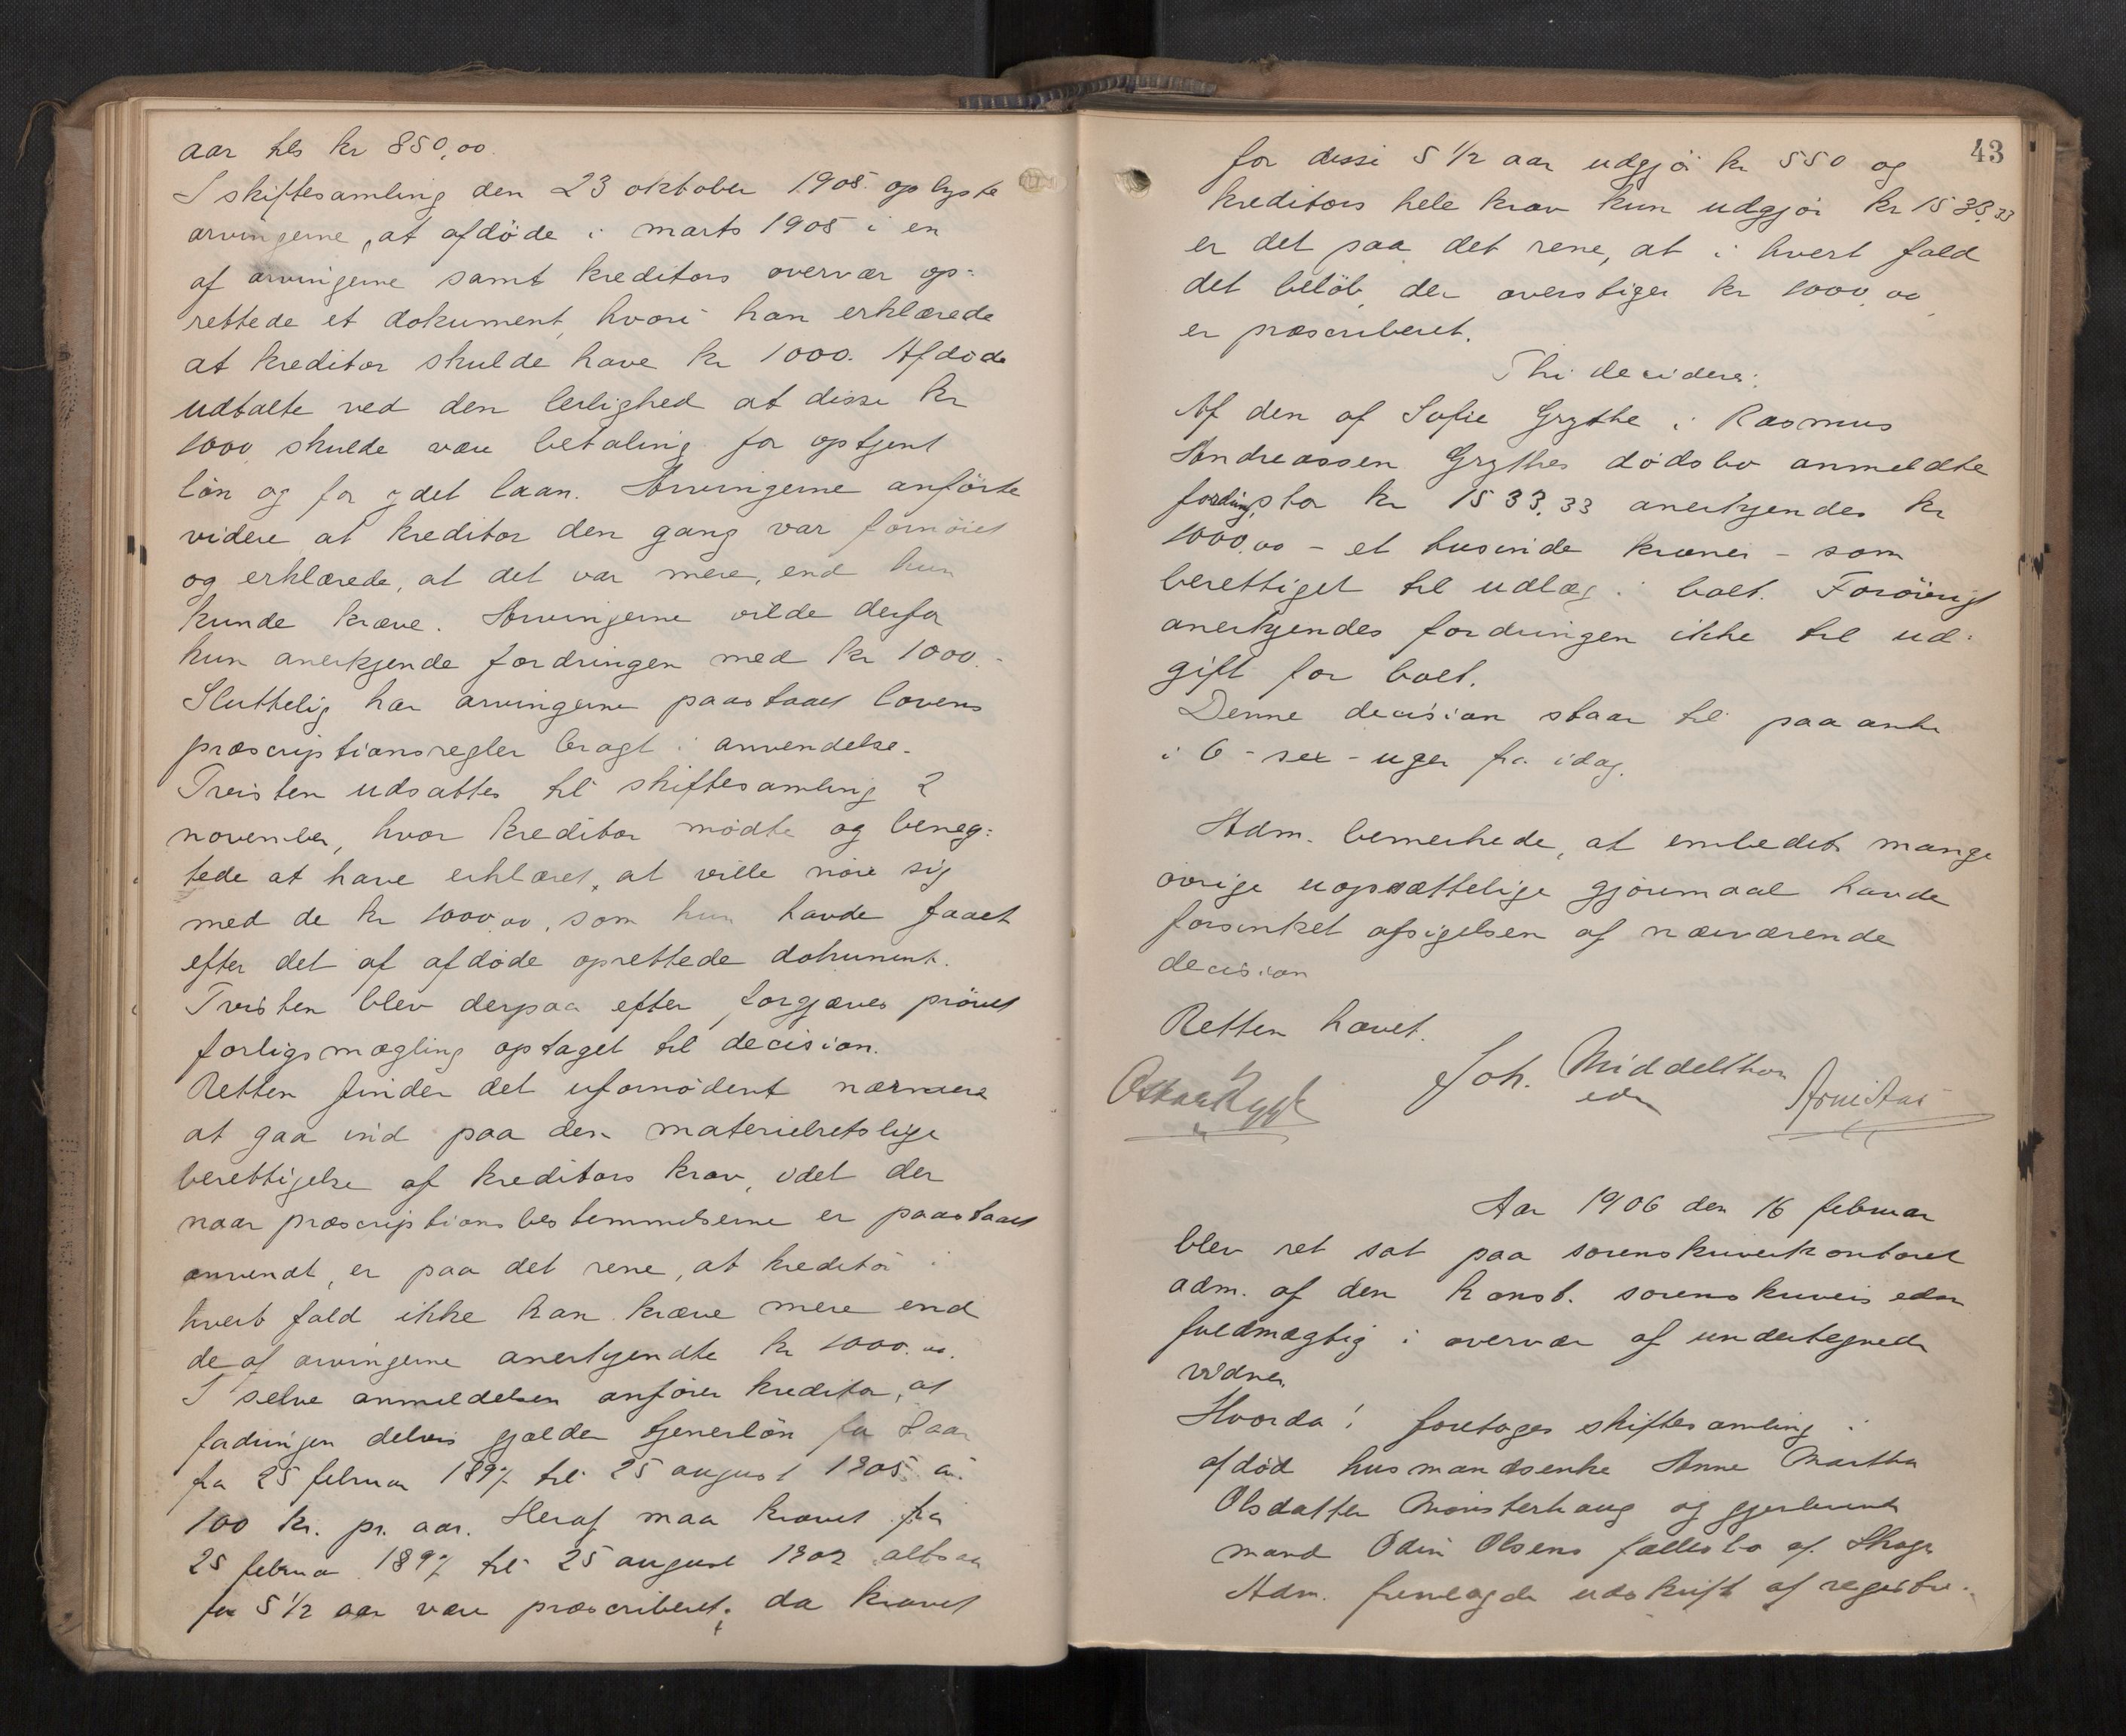 aar tils kr 850,00.
I skiftesamling den 23 oktober 1905 oplyste
arvingerne, at afdøde i marts 1905 i en
af arvingerne samt kreditors overvær op-
rettede et dokument, hvori han erklærede
at kreditor skulde have kr 1000. Afdøde
udtalte ved den leilighed at disse kr
1000 skulde være betaling for optjent
løn og for ydet laan. Arvingerne anførte
videre at kreditor den gang var fornøiet
og erklærede, at det var mere, end hun
kunde kræve. Arvingerne vilde derfor
kun anerkjende fordringen med kr 1000.-
Sluttelig har arvingerne paastaaet lovens
præscriptionsregler bragt i anvendelse.
Tvisten udsattes til skiftesamling 2
november, hvor kreditor mødte og beneg-
tede at have erklæret, at ville nøie sig
med de kr 1000,00, som hun havde faaet
efter det af afdøde oprettede dokument.
Tvisten blev derpaa efter forgjæves prøvet
forligsmægling optaget til decision.
Retten finder det ufornødent nærmere
at gaa ind paa den materielretslige
berettigelse af kreditors krav, idet der
naar præscriptionsbestemmelserne er paastaaet
anvendt, er paa det rene, at kreditor i
hvert fald ikke kan kræve mere end
de af arvingerne anerkjendte kr 1000.00.
I selve anmeldelsen anfører kreditor, at
fordringen delvis gjælder tjenerløn for 8 aar
fra 25 februar 1897 til 25 august 1905 a.
100 kr. pr. aar. Heraf maa kravet fra
25 februar 1897 til 25 august 1902 altsaa
for 5 1/2 aar være præscriberet; da kravet
43
for disse 5 1/2 aar udgjør kr 550 og
kreditors hele krav kun udgjør kr 1533,33
er det paa det rene, at i hvert fald
det beløb, der overstiger kr 1000,00
er præscriberet.
Thi decideres:
Af den af Sofie Grythe i Rasmus
Andreassen Grythes dødsbo anmeldte
fordring stor kr 1533,33 anerkjendes kr
1000,00 - et tusinde kroner - som
berettiget til udlæg i boet. Forøvrigt
anerkjendes fordringen ikke til ud-
gift for boet.
Denne decision staar til paaanke
i 6 - sex - uger fra idag.
Adm. bemerkede, at embedets mange
øvrige uopsættelige gjøremaal havde
forsinket afsigelsen af nærværende
decision
Retten hævet.
Joh. Middelthon
edsv
Aar 1906 den 16 februar
blev ret sat paa sorenskriverkontoret
adm. af den konst. sorenskrivers edsv
fuldmægtig i overvær af undertegnede
vidner.
Hvorda! foretages skiftesamling i
afdød husmandsenke Anne Martha
Olsdatter Mønsterhaug og gjenlevende
mand Odin Olsens fællesbo af Skage
Adm. fremlagde udskrift af registre-